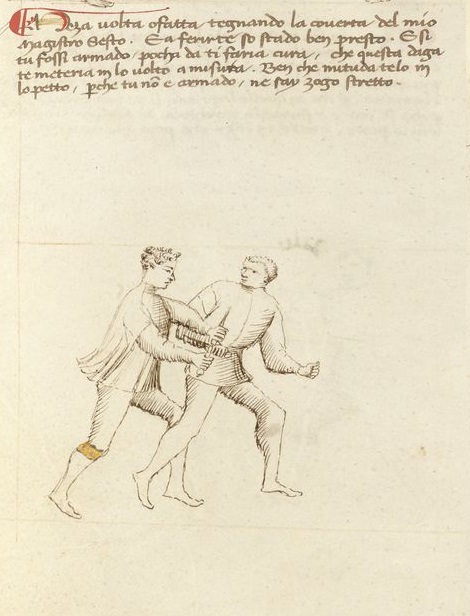 Meza volta o fatta tegnando la coverta del mio
Magistro Sesto. E a ferirte so stado ben presto. E si
tu fossi armado, pocha da ti faria cura, che questa daga
te meteria in lo volto a misura. Ben che in tuda telo in
lo petto, perche tu non e armado, ne say zogo stretto.